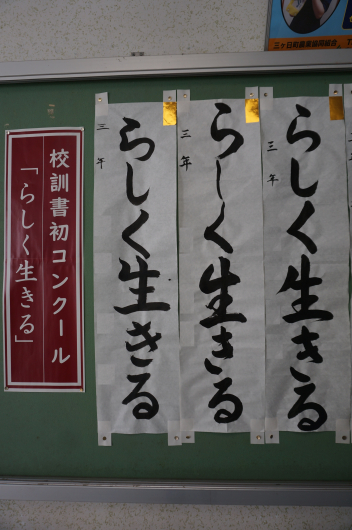 三ヶ日町農業協同組合
校訓書初コンクール
「らしく生きる」
らしく生きる
三年
らしく生きる
三年
らしく生きる
三年